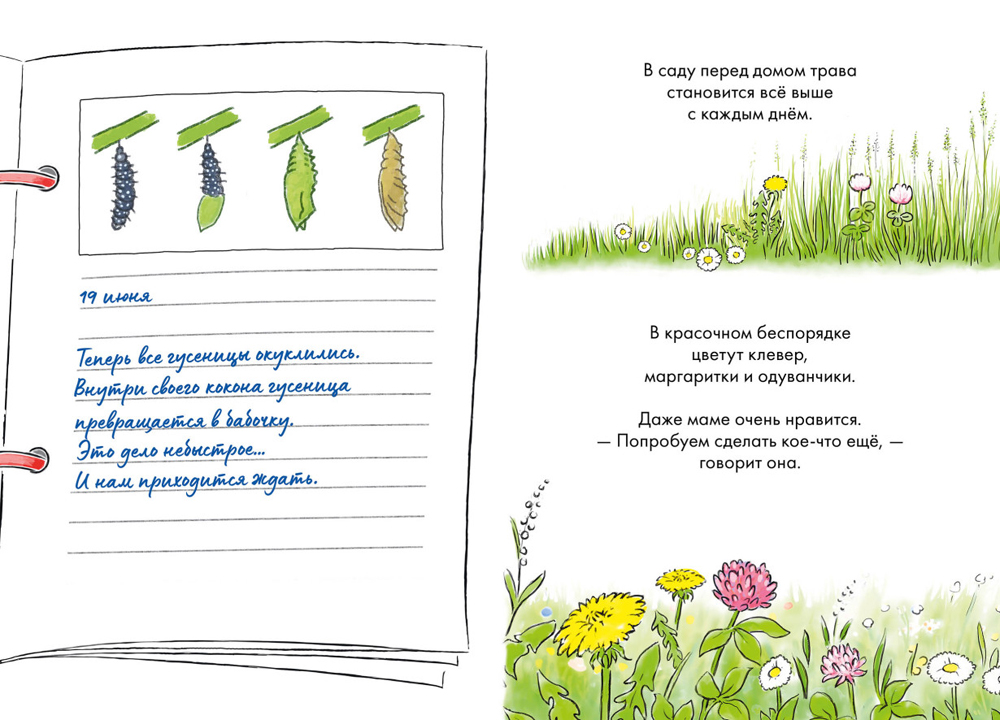 19 июня
Теперь все гусеницы окуклились.
Внутри своего кокона гусеница
превращается в бабочку.
Это дело небыстрое...
И нам приходится ждать.
В саду перед домом трава
становится всё выше
с каждым днём.
В красочном беспорядке
цветут клевер,
маргаритки и одуванчики.
Даже маме очень нравится.
— Попробуем сделать кое-что ещё, —
говорит она.